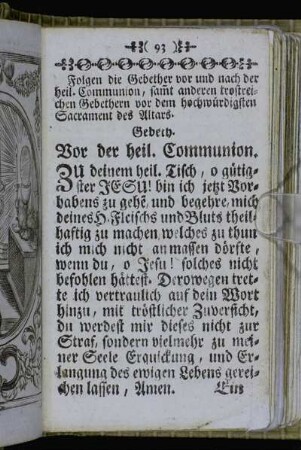 ( 93 )
Folgen die Gebether vor und nach der
heil. Communion, sam̅t anderen trostrei-
chen Gebethern vor dem hochwürdigsten
Sacrament des Altars.
Gebeth.
Vor der heil. Communion.
ZU deinem heil. Tisch, o gütig-
ster JESU! bin ich jetzt Vor-
habens zu gehē, und begehre, mich
deines H. Fleischs und Bluts theil-
haftig zu machen, welches zu thun
ich mich nicht anmassen dörfte,
wenn du, o Jesu! solches nicht
befohlen hättest. Derowegen tret-
te ich vertraulich auf dein Wort
hinzu, mit tröstlicher Zuversicht,
du werdest mir dieses nicht zur
Straf, sondern vielmehr zu mei-
ner Seele Erquickung, und Er-
langung des ewigen Lebens gerei-
chen lassen, Amen. Ein